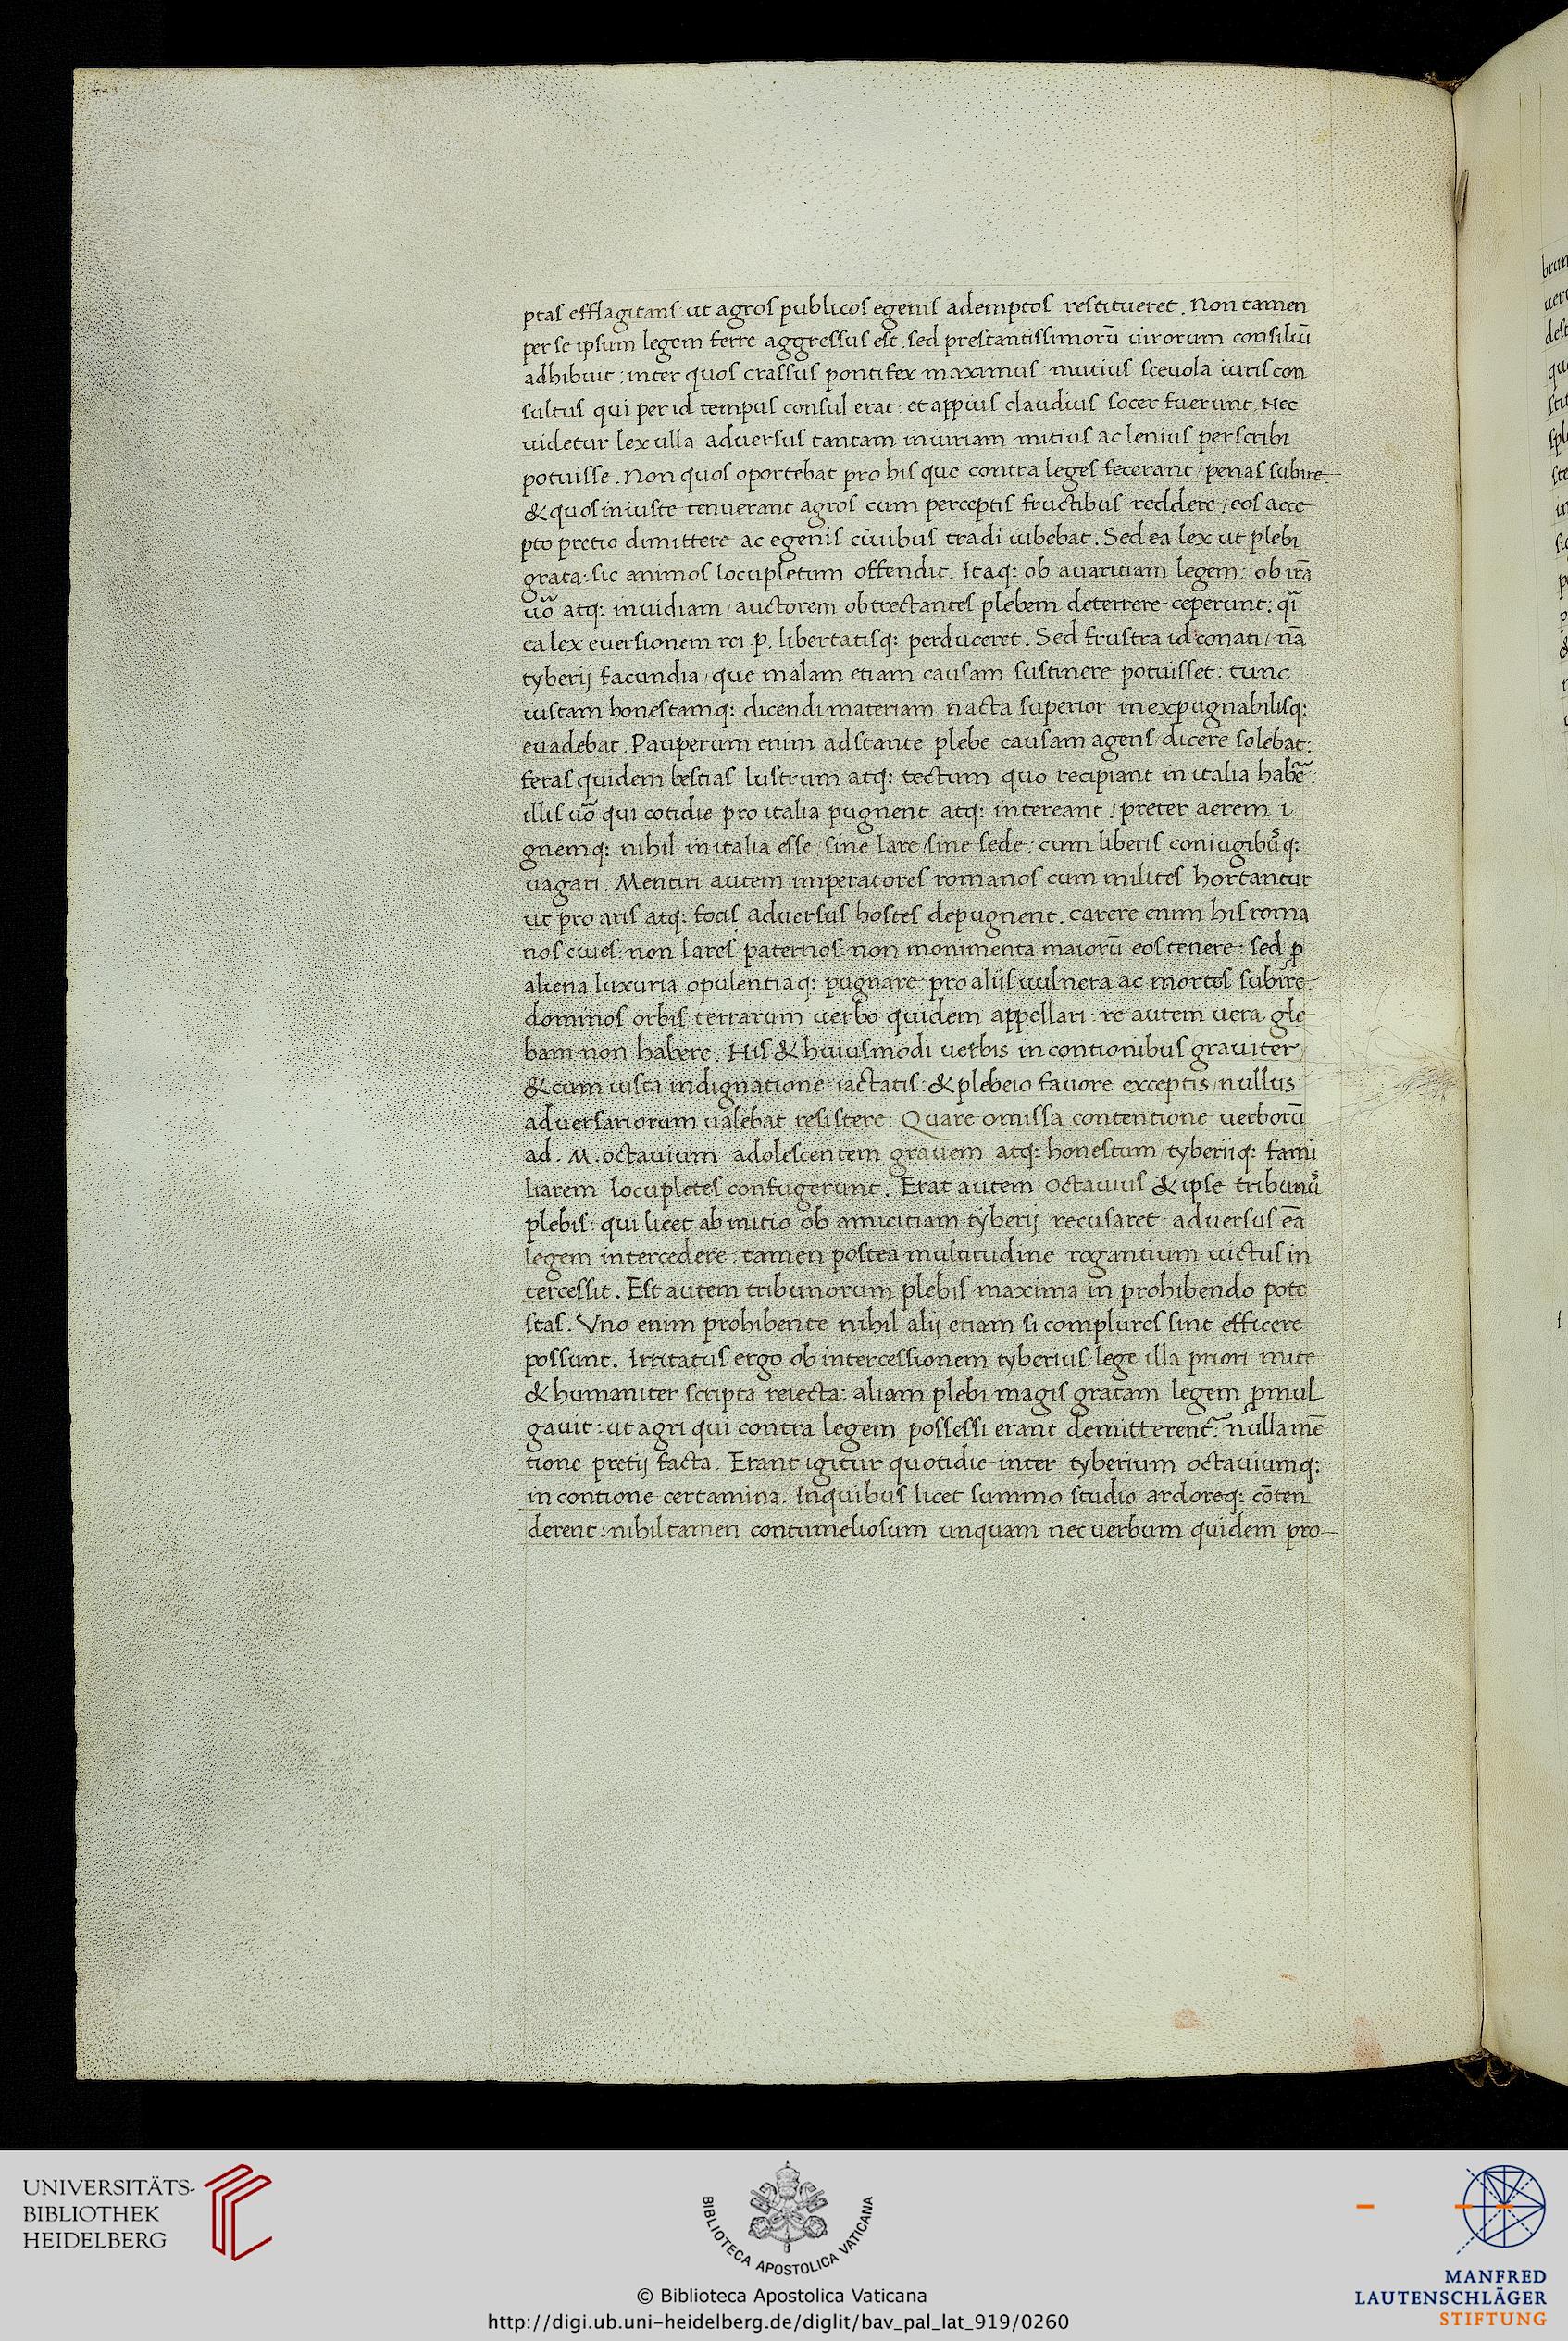 ptas efflagitans: ut agros publicos egenis ademptos restitueret. Non tamen
per se ipsum legem ferre aggressus est. sed prestantissimorū uirorum consiliū
adhibuit: inter quos crassus pontifex maximus: mutius sceuola iuris con
sultus qui per id tempus consul erat: et appius claudius socer fuerunt. Nec
uidetur lex ulla aduersus tantam iniuriam mitius ac lenius perscribi
potuisse. Non quos oportebat pro his que contra leges fecerant / penas subire
& quos iniuste tenuerant agros cum perceptis fructibus reddere / eos acce
pto pretio dimittere ac egenis ciuibus tradi iubebat. Sed ea lex ut plebi
grata: sic animos locupletum offendit. Itaq: ob auaritiam legem: ob irā
uō atq: inuidiam / auctorem obtrectantes plebem deterrere ceperunt: qi
ea lex euersionem rei .p. libertatisq: perduceret. Sed frustra id conati / nā
tyberij facundia / que malam etiam causam sustinere potuisset: tunc
iustam honestamq: dicendi materiam nacta superior inexpugnabilisq:
euadebat. Pauperum enim adstante plebe causam agens / dicere solebat:
feras quidem bestias lustrum atq: tectum quo recipiant in italia habē:
illis uō qui cotidie pro italia pugnent atq: intereant: preter aerem i
gnemq: nihil in italia esse / sine lare / sine sede: cum liberis coniugibusq:
uagari. Mentiri autem imperatores romanos cum milites hortantur
ut pro aris atq: focis aduersus hostes depugnent. carere enim his roma
nos ciues: non lares paternos non monimenta maiorū eos tenere: sed p
aliena luxuria opulentiaq: pugnare: pro aliis uulnera ac mortes subire:
dominos orbis terrarum uerbo quidem appellari: re autem uera gle
bam non habere. His & huiusmodi uerbis in contionibus grauiter
& cum iusta indignatione iactatis: & plebeio fauore exceptis / nullus
aduersariorum ualebat resistere. Quare omissa contentione uerborū
ad .M. octauium adolescentem grauem atq: honestum / tyberiiq: fami
liarem locupletes confugerunt. Erat autem octauius & ipse tribunus
plebis: qui licet ab initio ob amicitiam tyberij recusaret: aduersus eā
legem intercedere: tamen postea multitudine rogantium uictus in
tercessit. Est autem tribunorum plebis maxima in prohibendo pote
stas. Vno enim prohibente nihil alij etiam si complures sint efficere
possunt. Irritatus ergo ob intercessionem tyberius: lege illa priori mite
& humaniter scripta reiecta: aliam plebi magis gratam legem pmul
gauit: ut agri qui contra legem possessi erant demitterent: nulla mē
tione pretij facta. Erant igitur quotidie inter tyberium octauiumq:
in contione certamina. In quibus licet summo studio ardoreq: cōten
derent: nihil tamen contumeliosum unquam nec uerbum quidem pro
UNIVERSITÄTS-
BIBLIOTHEK
HEIDELBERG
BIBLIOTECA APOSTOLICA VATICANA
© Biblioteca Apostolica Vaticana
http://digi.ub.uni-heidelberg.de/diglit/bav_pal_lat_919/0260
MANFRED
LAUTENSCHLÄGER
STIFTUNG